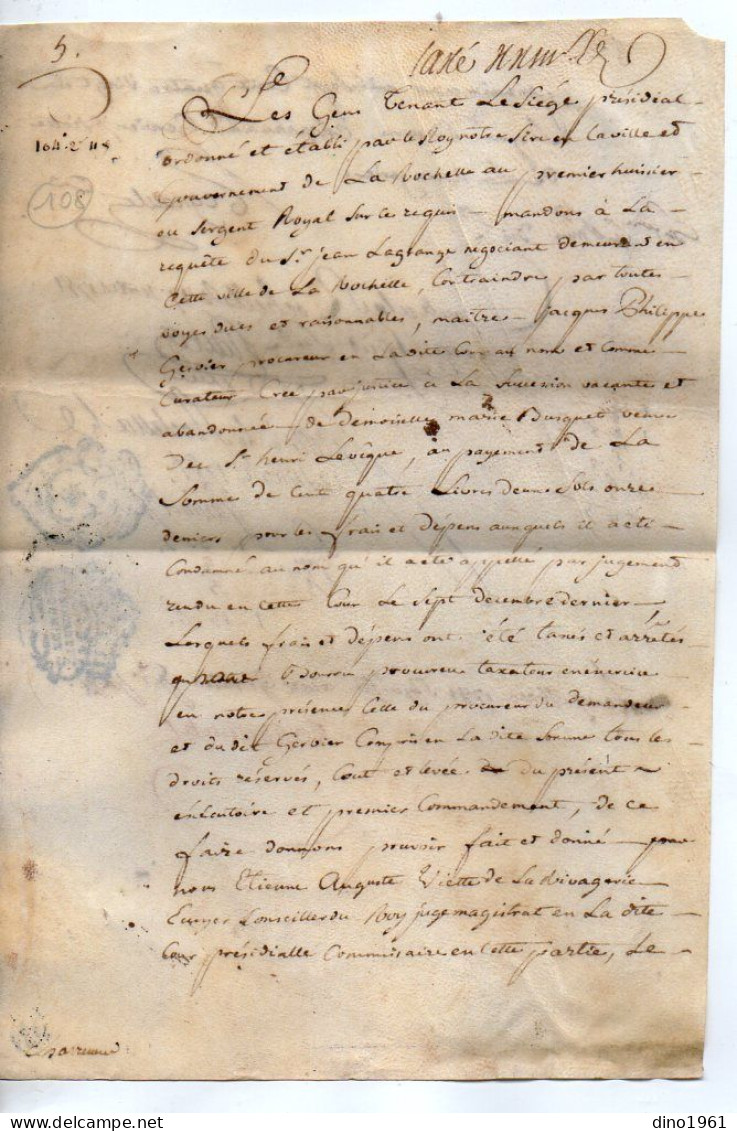 5.
taxé
Les Gens Tenant Le Siége présidial
104# 2s 11d
ordonné et établi par le Roy notre Sire en la ville et
108
Gouvernement de La Rochelle au premier huissier
ou Sergent Royal Sur ce requis mandons à La
requête du Sr. jean Lagrange negociant demeurant en
Cette ville de La Rochelle, Contraindre par toutes
voyes dues et raisonnables, maitre jacques Philippe
Gervier procureur en La dite Cour au nom et Comme
Curateur Créé par justice à La Succession vacante et
abandonnée de demoiselle marie Busquet veuve
Du Sr. henri Levêque, au payement de La
Somme de Cent quatre Livres deux Sols onze
deniers pour les frais et dépens auxquels il a été
Condamné au nom qu'il a été appellé par jugement
rendu en Cette Cour Le Sept decembre dernier
Lesquels frais et dépens ont été taxés et arrêtés
procureur taxateur en éxercice
en notre présence Celle du procureur du demandeur
et du dit Gervier Compris en La dite Somme tous les
droits réservés, Cout et levée du présent
exécutoire et premier Commandement, de ce
faire donnons pouvoir fait et donné par
nous Etienne Auguste Viette de La Rivagerie
Ecuyer Conseiller du Roy juge magistrat en La dite
Cour présidialle Commissaire en Cette partie, Le
dino1961